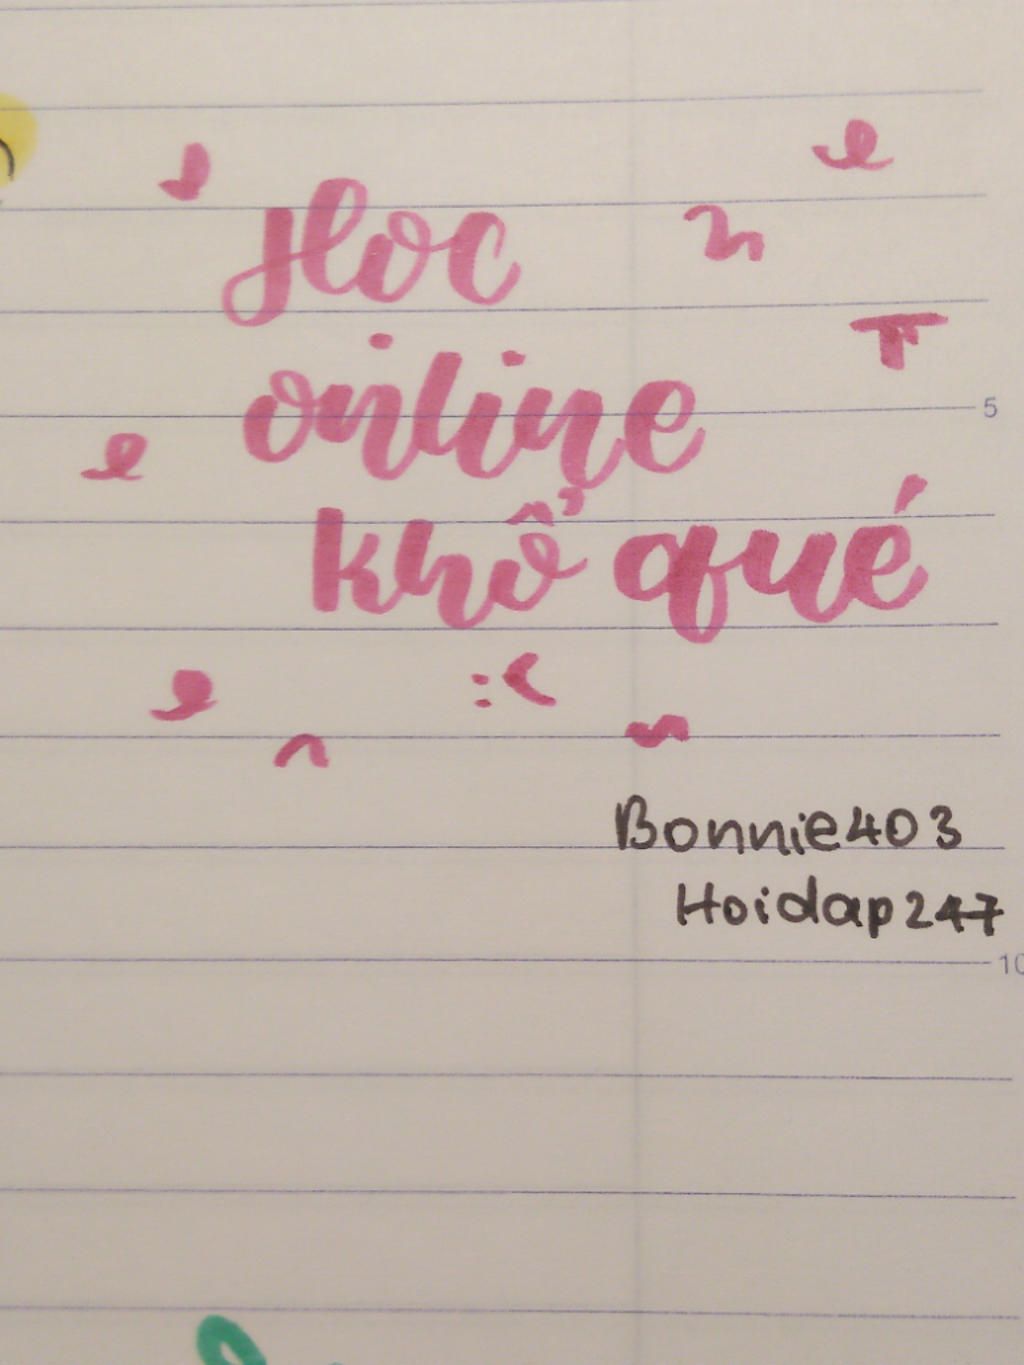 Hoc
online
khổ qué
:<
Bonnie403
Hoidap247
5
10